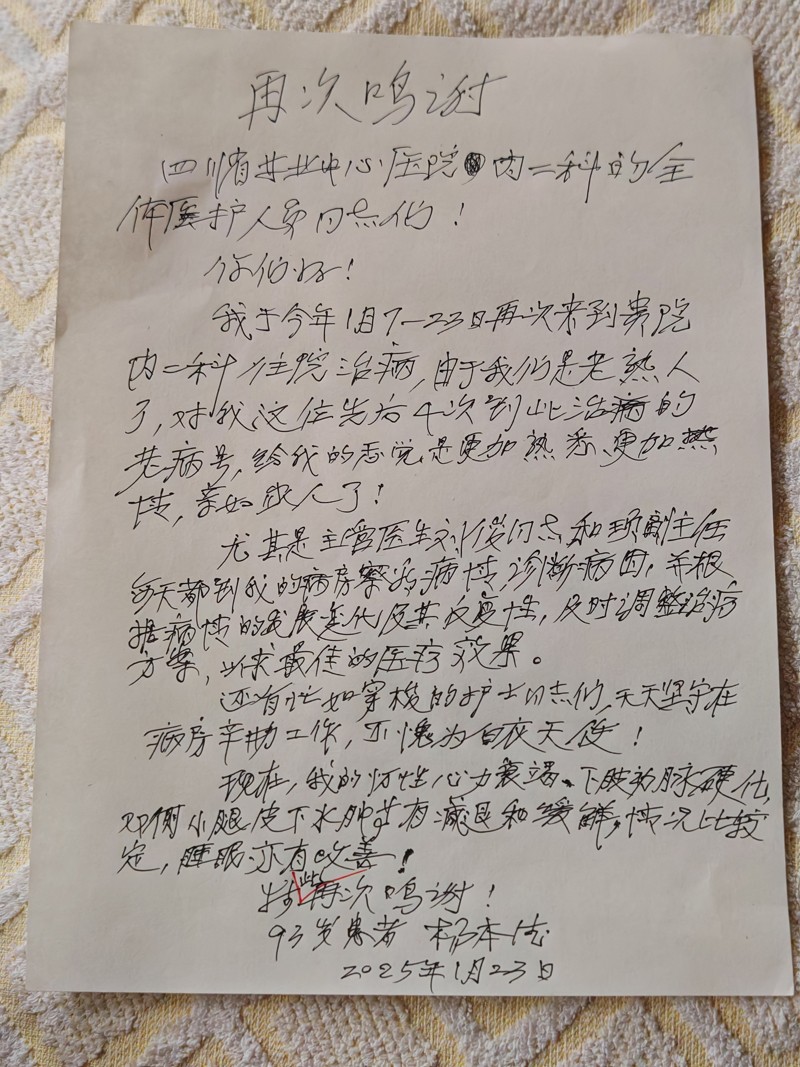 再次鸣谢
四川省林业中心医院内二科的全
体医护人员同志们！
你们好！
我于今年1月7—23日再次来到贵院
内二科住院治病，由于我们是老熟人
了，对我这位先后4次到此治病的
老病号，给我的感觉是更加熟悉、更加热
情，亲如家人了！
尤其是主管医生刘俊同志和项副主任
每天都到我的病房察看病情诊断病因，并根
据病情的发展变化及其反复性，及时调整治疗
方案，以求最佳的医疗效果。
还有忙如穿梭的护士同志们，天天坚守在
病房辛勤工作，不愧为白衣天使！
现在，我的慢性心力衰竭、下肢动脉硬化，
双侧小腿皮下水肿若有减退和缓解，情况比较
定，睡眠亦有改善！
特此再次鸣谢！
93岁患者 杨本
2025年1月23日